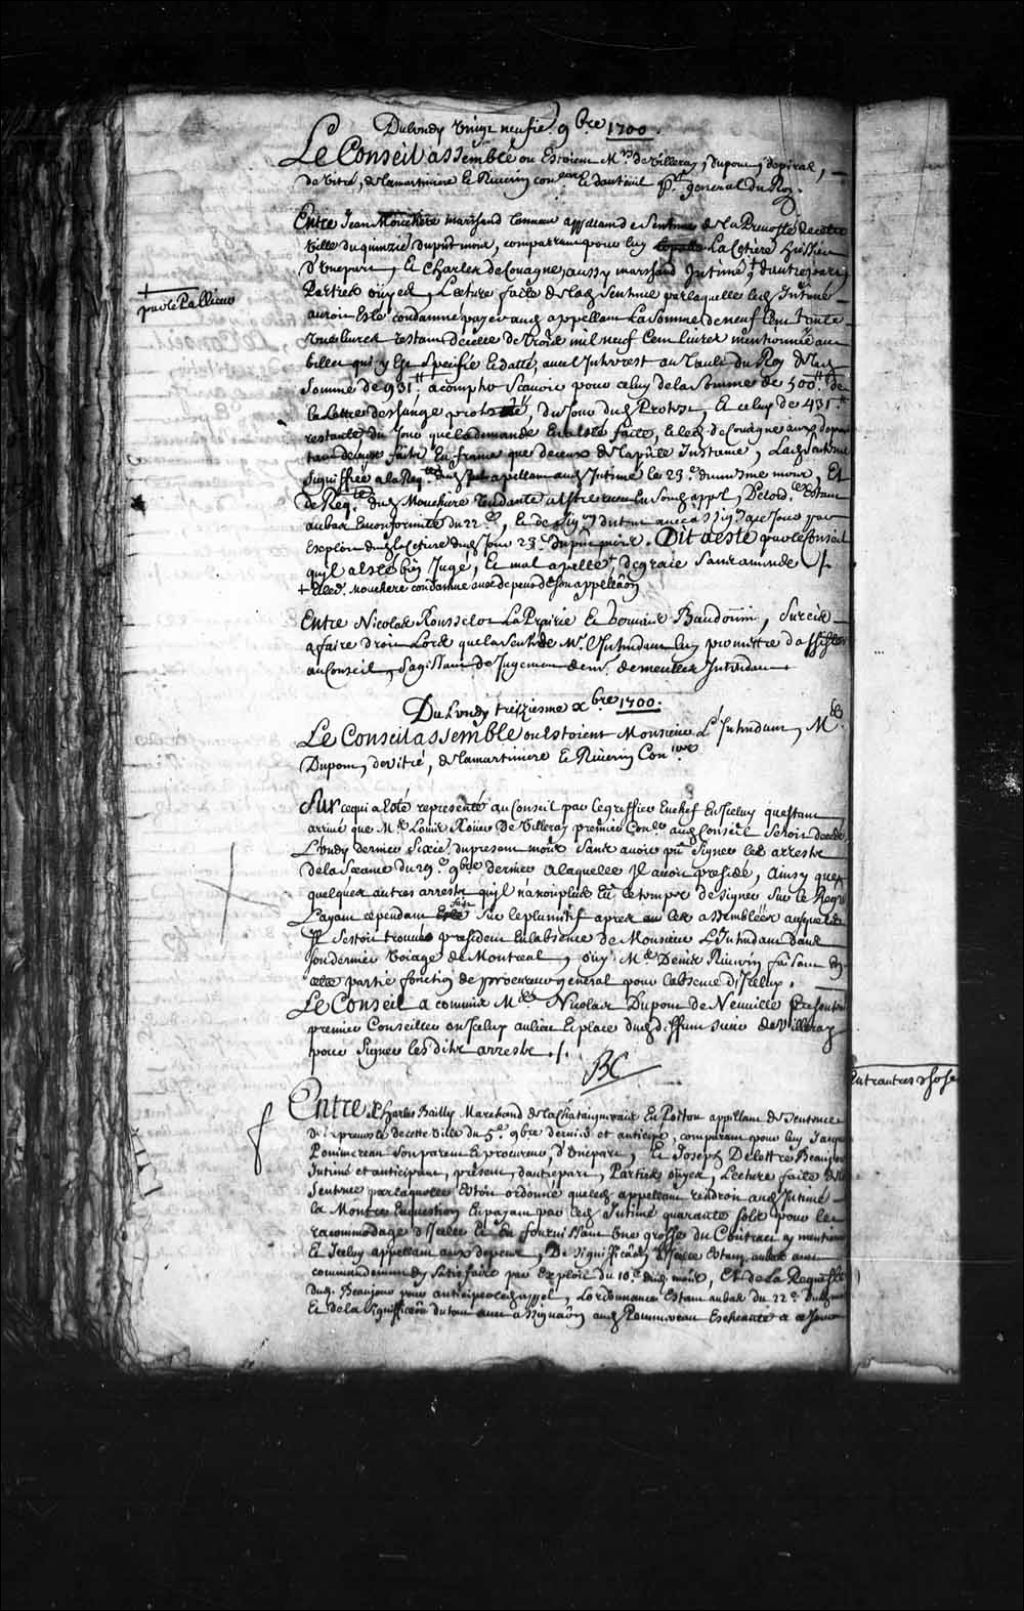 Du Lundy vingt neufie. 9bre 1700.
Le Conseil assemblé ou Estoient Mrs de Villeray, dupont, depeiras,
de vitré, de lamartiniere et Riverin coners et dauteuil pr. general du Roy.
Entre Jean marchand appellant de Sentence de la Prevosté de cette
ville du quinzie. du pnt mois, comparant par luy La Cetiere huissier
d'une part, Et Charles de Couagne, aussy marchand Intimé, d'autre part,
par le Pallieur
Parties ouyes, Lecture faite de lad. Sentence par laquelle led. Intimé
auroit esté condamné payer aud. appellant La Somme de neuf Cent trente
une livres restant de celle de trois mil neuf Cent livres mentionnée au
billet qui y Est Specifié et datté, avec Interest au Taux du Roy de lad.
Somme de 931.tt, a compter Scavoir pour celuy de la Somme de 500.tt de
la Lettre deschange protestée, du Jour dud. Protest, Et celuy de 431.tt
restante du Jour que la demande En a esté faite, et led. de Couagne aux depens
Lad. Sentence
Signiffiée a la Reqte dud. appellant aud. Intimé le 23.e du mesme mois, Et
de Reqte dud. Mouchere tendante a estre receu En Son appel, Lordce Estant
au bas En conformité du 22.e, Et de Sig.on du tout avec assig.on a ce Jour par
Exploit dud. La Cetiere dud. Jour 23.e du present mois. Dit a esté par le Conseil
quil a esté bien Jugé, Et mal appellé, de grace Sans amende
+ Et led. Mouchere condamné aux depens de son appellaon
Entre Nicolas Rousselot La Prairie Et Baudouin, Surcis
a faire droit Lors que la Santé de Mr. L'Intendant luy promettre d'assister
au Conseil, Sagissant de Jugement de Intendant
Du Lundy treiziesme xbre 1700.
Le Conseil assemblé ou Estoient Monsieur L'Intendant, Mrs
Dupont, de vitré, de lamartiniere et Riverin Coners
Sur ce qui a Esté representé au Conseil par Le greffier En chef En Iceluy questant
arrivé que Me Louis Roüer De Villeray premier Coner aud. Conseil Seroit decedé
Lundy dernier Sixie. du present mois Sans avoir pû Signer les arrests
de la Seance du 29.e 9bre dernier a laquelle Il avoit presidé, ainsy que
quelques autres arrests quil na non plus Eu le temps de Signer Sur le Regre
L'ayant cependant fait Sur le plumitif apres les assemblées ausquelles
Il Sestoit trouvé president En labsence de Monsieur L'Intendant dans
Son dernier voiage de Montreal, ouy Me Denis Riverin faisant En
cette partie fonction de procureur general pour labsence diceluy.
Le Conseil a commis Me Nicolas Dupont de Neuville presentement
premier Conseiller en Iceluy au lieu Et place dud. deffunt Sieur de Villeray
pour Signer lesdits arrests ./.
Ent'autres chose
Entre Charles Bailly Marchand de la Chataigneraie En Poitou appellant de Sentence
de la prevosté de cette ville du 5.e 9bre dernier et anticipé, comparant par luy Jacques
Pommereau Son parent et procureur, d'une part, Et Joseph Delettre Beaujour
Intimé et anticipant, present, d'autre part, Parties ouyes, Lecture faite de lad.
Sentence par laquelle Estoit ordonné que led. appellant rendroit aud. Intimé
la Montre En question En payant par led. Intimé quarante Sols pour le
racommodage d'Icelle Et En fournissant Une grosse du Contract y mentionné
Et Iceluy appellant aux depens, De Signifficaon d'Icelle Estant au bas avec
commandement d'y Satisfaire par Exploit du 10.e dud. mois, Et de la Requeste
dud. Beaujour pour anticiper led. appel, Lordonnance Estant au bas du 22.e
Et de la Signifficaon du tout avec assignaon aud. Pommereau Escheante a ce Jour